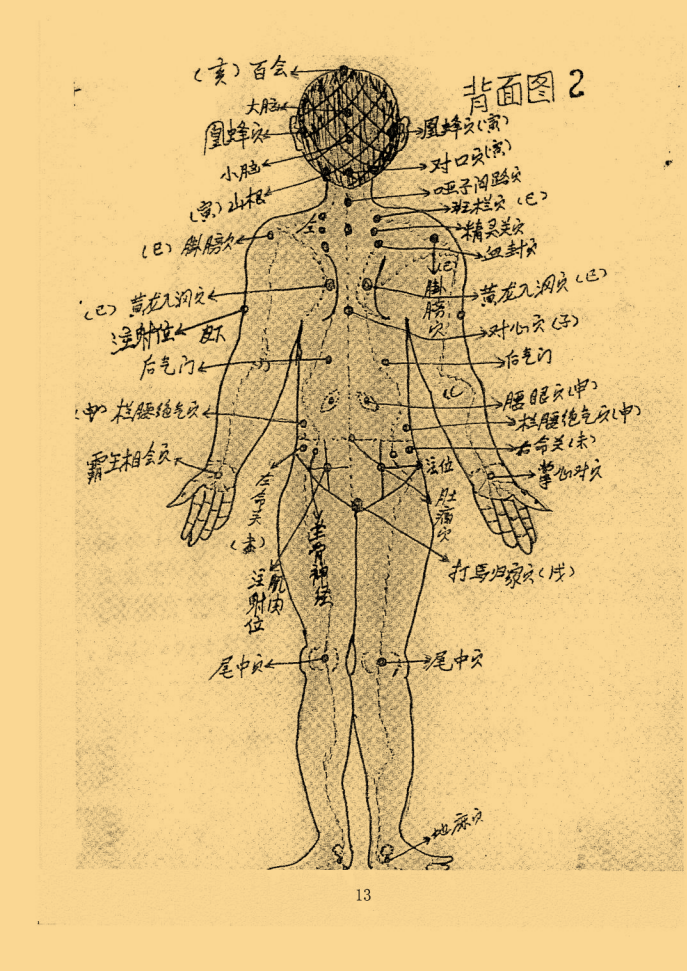 背面图 2
(亥) 百会
大脑
凰蜂穴
凰蜂穴(寅)
小脑
对口穴(寅)
哑子问路穴
(寅) 山根
班栏穴 (巳)
左
精灵关穴
(巳) 脚膀穴
血封穴
(巳) 脚膀穴
(巳) 黄龙入洞穴
黄龙入洞穴 (巳)
注射位 皮下
对心穴 (子)
后气门
后气门
腰眼穴(申)
(申) 栏腰绝气穴
栏腰绝气穴(申)
右命关(未)
霸王相会穴
注位
掌心对穴
左命关
肚痛穴
坐骨神经
打马归家穴(戌)
肌肉
注射位
尾中穴
尾中穴
地麻穴
13